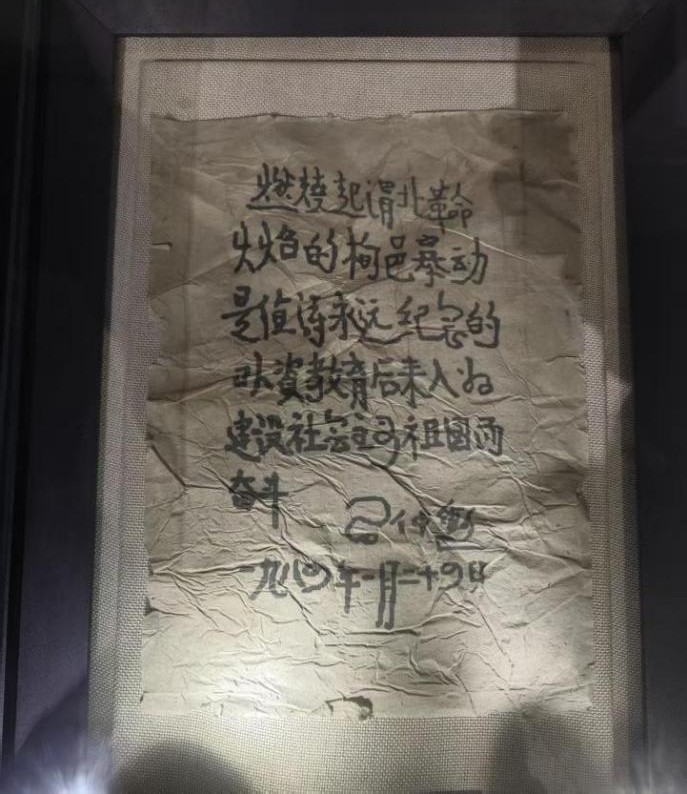 燃烧起渭北革命
火焰的栒邑暴动
是值得永远纪念的
以资教育后来人为
建设社会主义祖国而
奋斗
一九八〇年一月二十四日